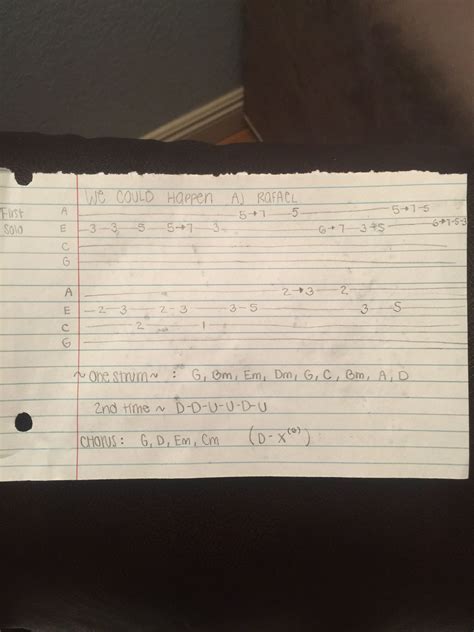 We Could Happen AJ Rafael
First A 5→7 5 5→7-5
Solo E 3-3 5 5→7 3 6→7 3→5 6→7-5-3
C
G
A 2→3 2
E 2-3 2-3 3-5 3 5
C 2 1
G
~one strum~ : G, Bm, Em, Dm, G, C, Bm, A, D
2nd time ~ D-D-U-U-D-U
Chorus: G, D, Em, Cm (D-X⁽⁶⁾)